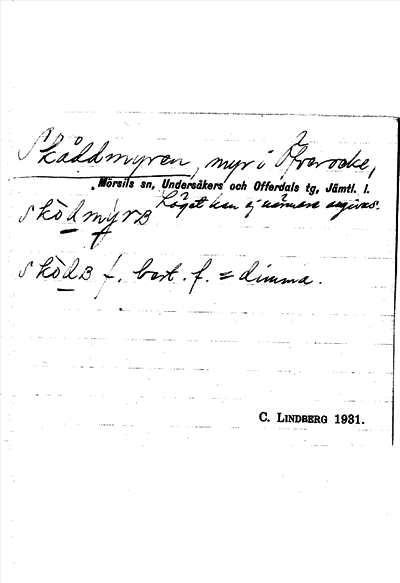 Skåddmyren, myr i Öfverocke,
Mörsils sn, Undersåkers och Offerdals tg, Jämtl. l.
Läget kan ej närmare angivas.
skòdmy̆rв
skòdв f. best. f. = dimma.
C. LINDBERG 1931.